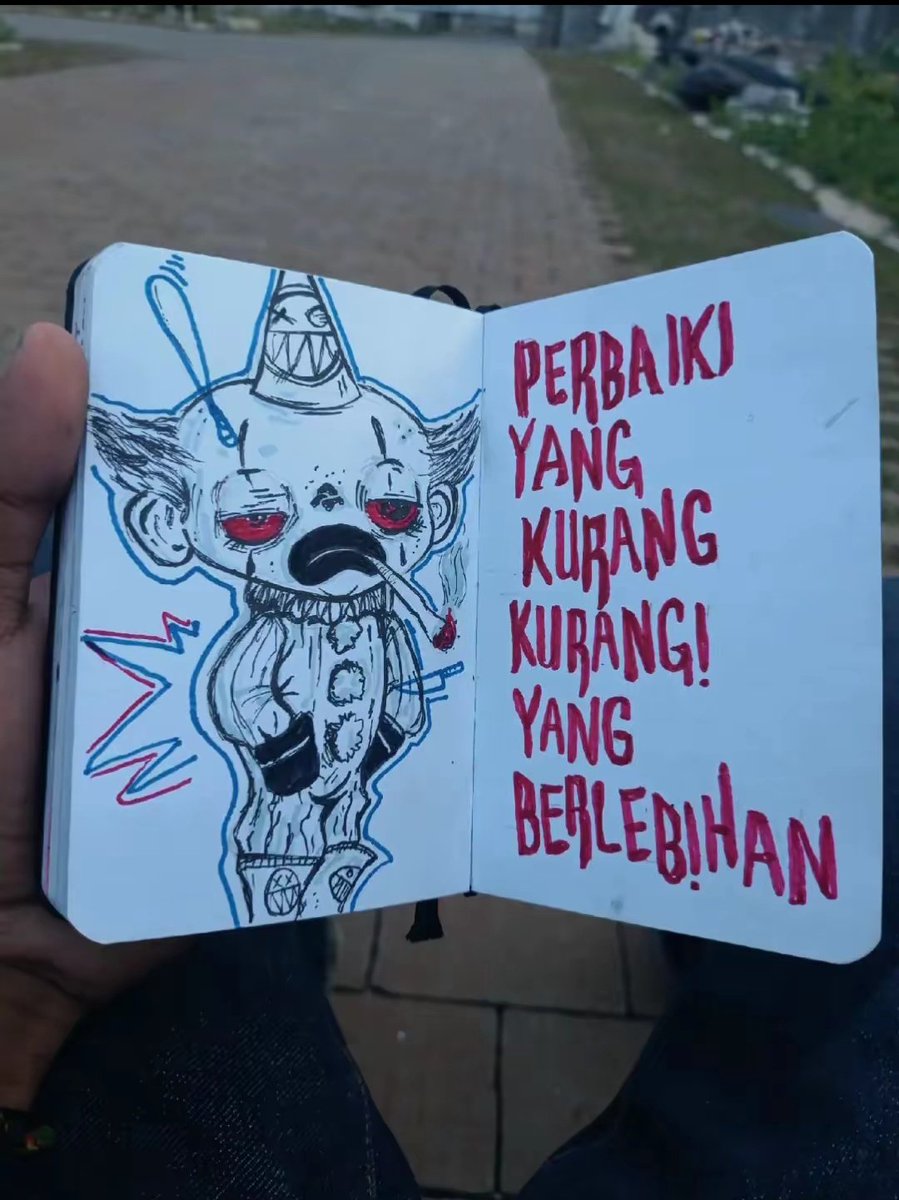 PERBAIKI
YANG
KURANG
KURANG!
YANG
BERLEBIHAN